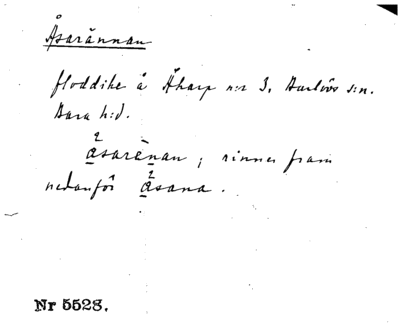 Åsarännan
floddike å Åkarp n:r 3, Burlövs s:n.
Bara h:d.
åsarènan; rinner fram
nedanför åsana.
Nr 5528.